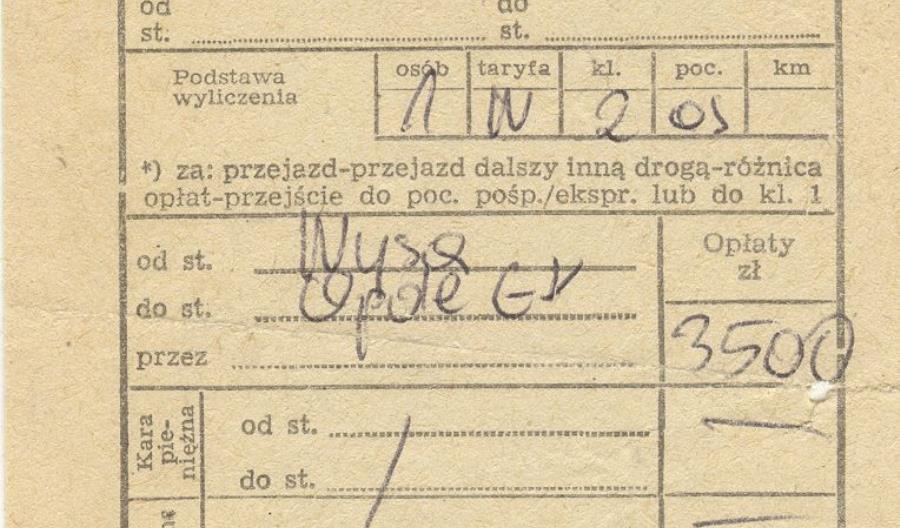 od do
st. st.
Podstawa wyliczenia
osób taryfa kl. poc. km
1 N 2 os
*) za: przejazd-przejazd dalszy inną drogą-różnica
opłat-przejście do poc. pośp./ekspr. lub do kl. 1
Opłaty
zł
od st.
do st. Opole Gł
3500
przez
Kara pieniężna
od st.
do st.